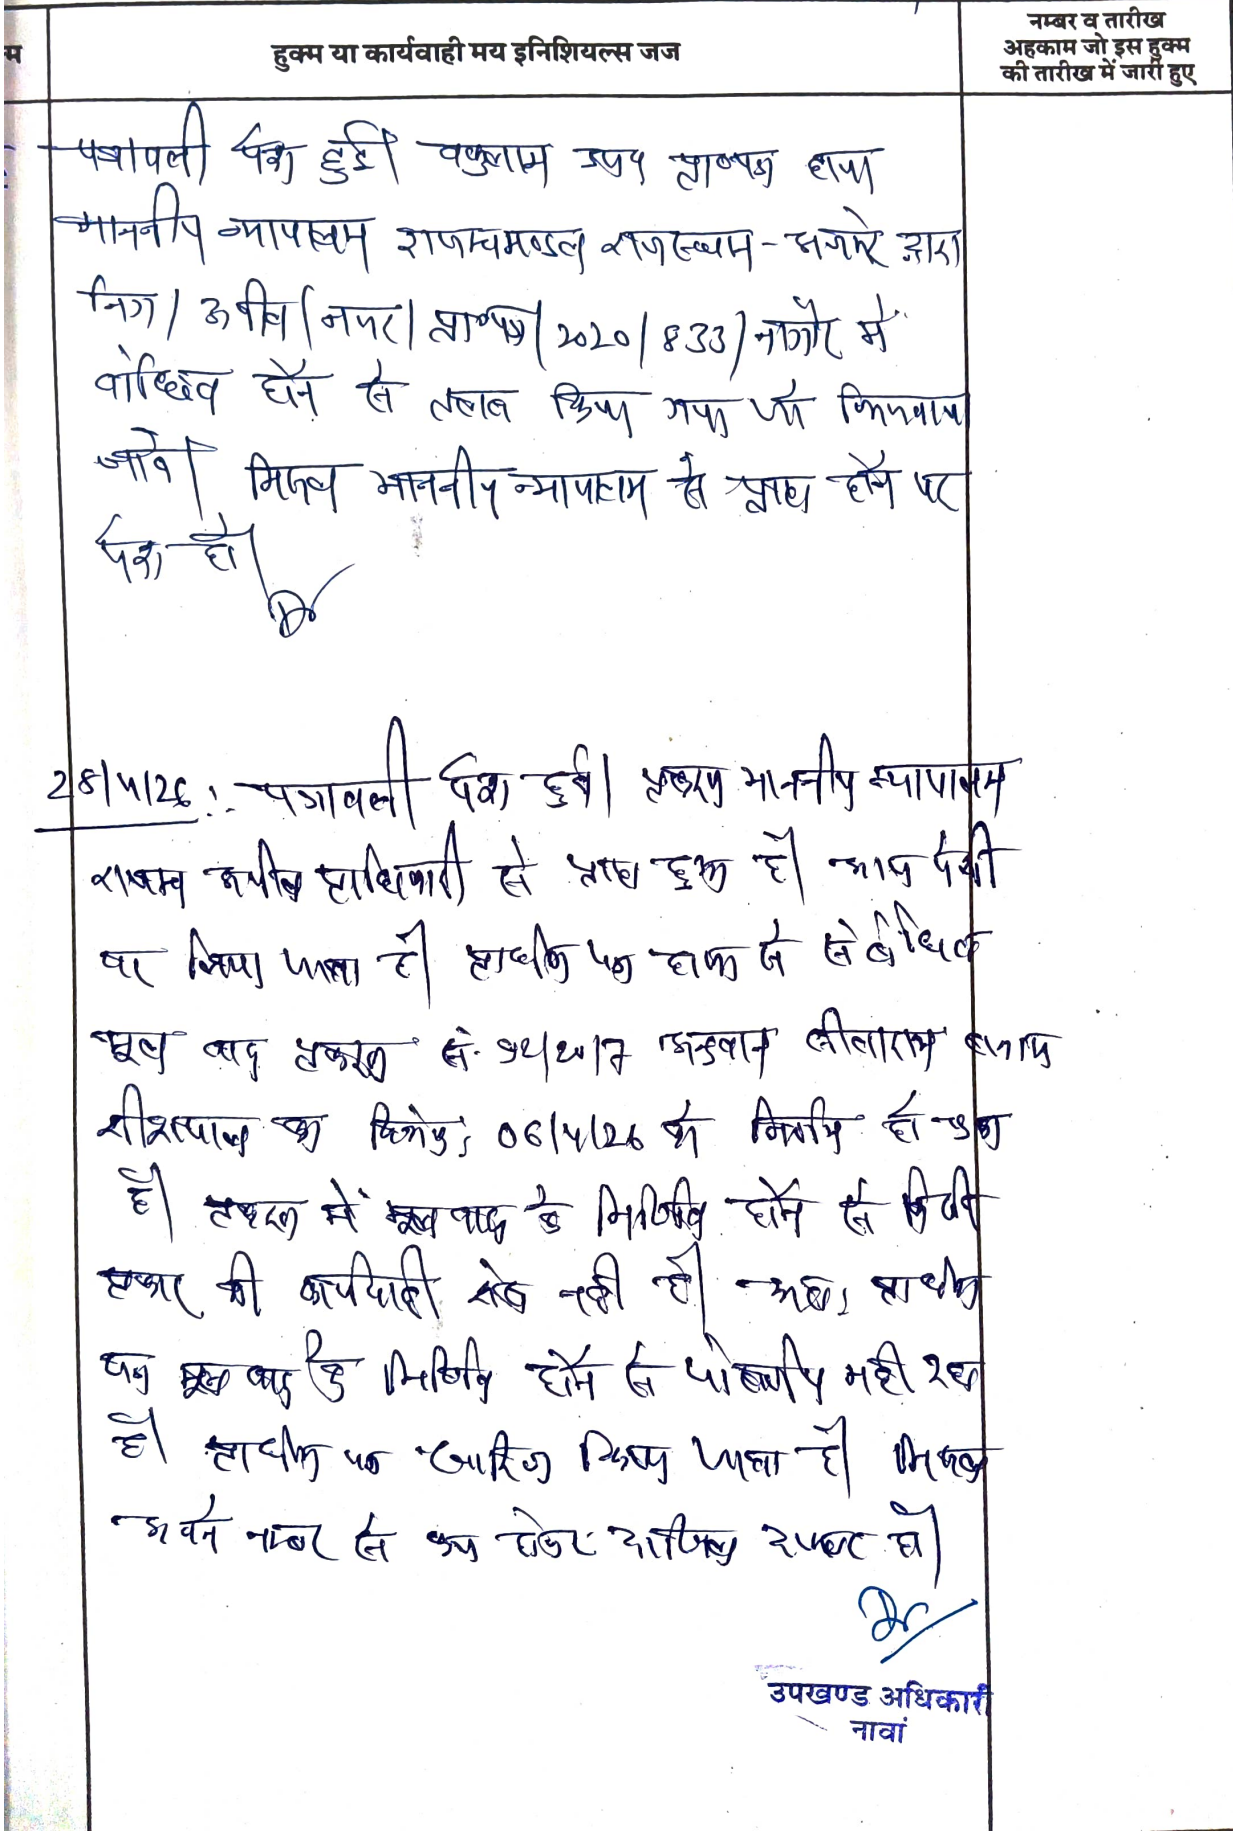 म
हुक्म या कार्यवाही मय इनिशियल्स जज
नम्बर व तारीख
अहकाम जो इस हुक्म
की तारीख में जारी हुए
पत्रावली पेश हुई। वकुलाय उप०
माननीय न्यायालय राजस्वमण्डल राजस्थान - अजमेर द्वारा
निग / अपील / / 2020 / 833 / नागौर में
होने से तलब किया गया भिजवाया
जावे। मिसल माननीय न्यायालय से प्राप्त होने पर
पेश हो।
28/4/26 :- पत्रावली पेश हुई। प्रकरण माननीय न्यायालय
राजस्व अपील प्राधिकारी से प्राप्त हुआ है। आज पेशी
पर लिया जाता है। प्रार्थना पत्र हाजा से संबंधित
मूल वाद प्रकरण सं. अनवान लीलाराम बनाम
शीशपाल का दिनांक 06/4/26 को निर्णय हो चुका
है। प्रकरण में मूल वाद के निर्णित होने से किसी
प्रकार की कार्यवाही शेष नहीं है। अतः प्रार्थना
पत्र मूल वाद के निर्णित होने से पोषणीय नहीं रहा
है। प्रार्थना पत्र खारिज किया जाता है। मिसल
नम्बर से कम होकर दाखिल दफ्तर हो।
उपखण्ड अधिकारी
नावां